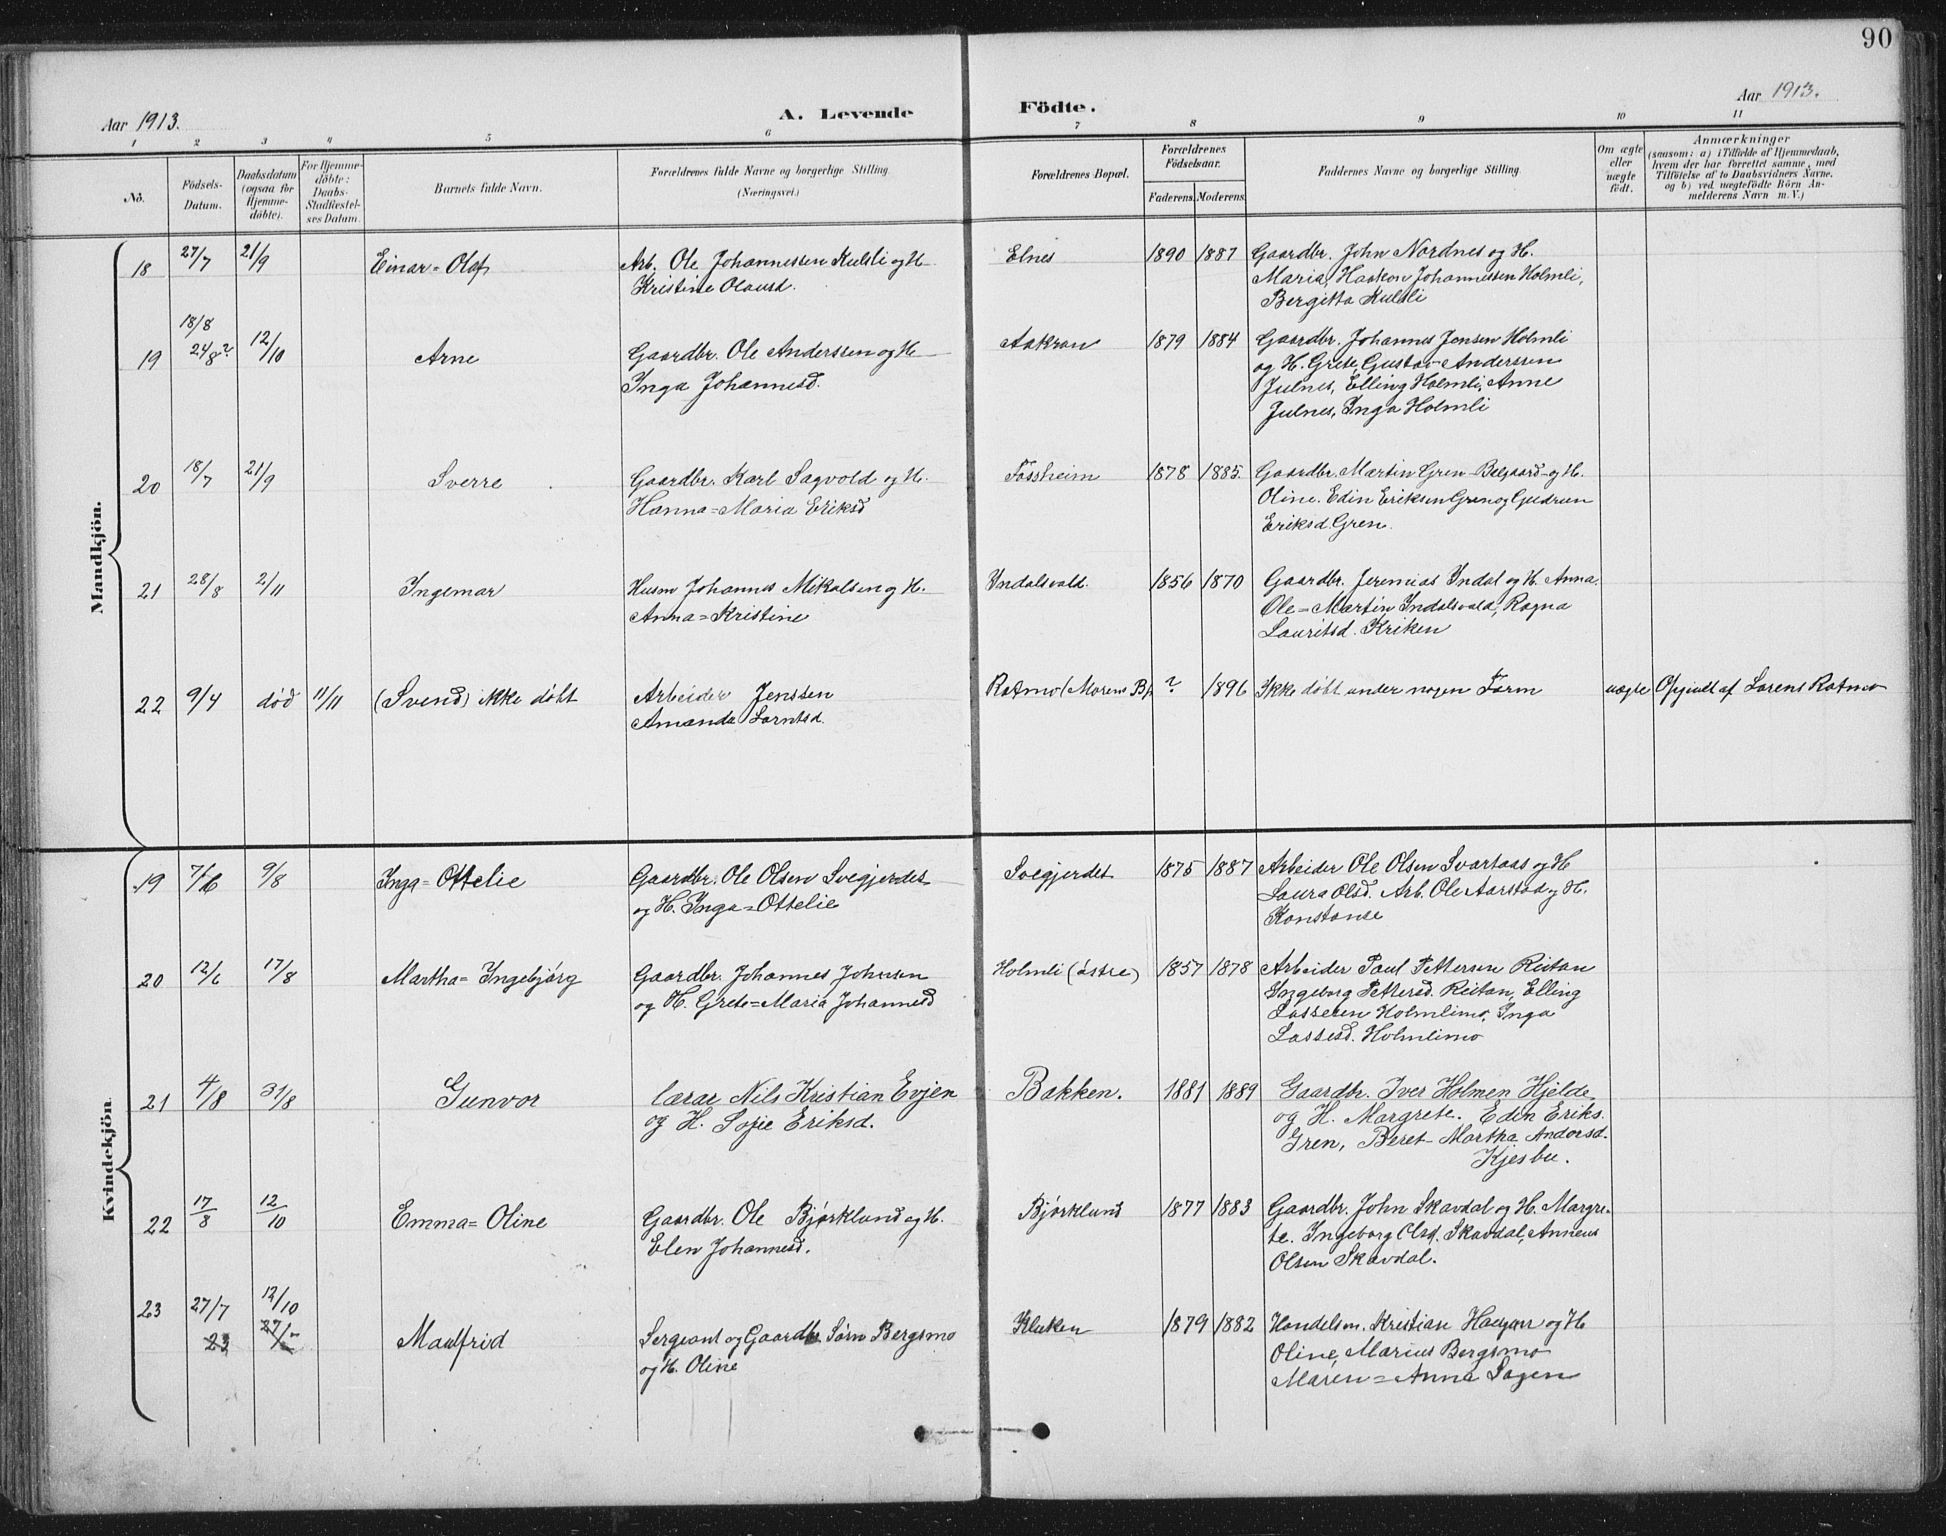 90
Aar 1913.
A. Levende Födte.
Aar 1913.
1 2 3 4 5 6 7 8 9 10 11
No.
Födsels-Datum.
Daabsdatum (ogsaa for Hjemme-döbte).
For Hjemme-döbte: Daabs-Stadfæstel-ses Datum.
Barnets fulde Navn.
Forældrenes fulde Navne og borgerlige Stilling
(Næringsvei.)
Forældrenes Bopæl.
Forældrenes Födselsaar.
Faderens. Moderens.
Faddernes Navne og borgerlige Stilling.
Om ægte eller uægte födt.
Anmærkninger
(saasom: a) i Tilfælde af Hjemmedaab, hvem der har forrettet samme, med Tilföielse af to Daabsvidners Navne, og b) ved uægtefödte Börn An-melderens Navn m. V.)
Mandkjön.
18 27/7 21/9 Einar=Olaf Arb. Ole Johannessen Kulsli og H. Elnes 1890 1887 Gaardbr. John Nordnes og H.
Kristine Olausd. Maria, Haakon Johannessen Holmli,
Bergitta Kulsli
18/8
19 24/8? 12/10 Arne Gaardbr. Ole Anderssen og H. Aakran 1879 1884 Gaardbr. Johannes Jensen Holmli
Inga Johannesd. og H. Grete, Gustav Anderssen
Julnes, Elling Holmli, Anne
Julnes, Inga Holmli
20 18/7 21/9 Sverre Gaardbr. Karl Sagvold og H. Fossheim 1878 1885. Gaardbr. Martin Gren Balgaard og H.
Hanna=Maria Eriksd Oline. Edin Eriksen Gren og Gudrun
Eriksd. Gren.
21 28/8 2/11 Ingemar Husm Johannes Mikalsen og H. Indalsvald 1856 1870 Gaardbr. Jeremias Indal og H. Anna.
Anna=Kristine Ole=Martin Indalsvald, Ragna
Lauritsd. Kriken
22 9/4 død 11/11 (Svend) ikke døbt Arbeider Jenssen Ratmo (Morens Bp. ? 1896 Ikke døbt under nogen Form uægte Opgivelt af Lorens Ratmo
Amanda Lorntsd.
Kvindekjön.
19 7/6 9/8 Inga=Ottelie Gaardbr. Ole Olsen Svegjerdet Svegjerdet 1875 1887 Arbeider Ole Olsen Svartaas og H
og H. Inga=Ottelie Laura Olsd. Arb. Ole Aarstad og H.
Konstanse
20 12/6 17/8 Martha=Ingebjørg Gaardbr. Johannes Johnsen Holmli (østre) 1857 1878 Arbeider Paul Pettersen Reitan
og H. Grete=Maria Johannesd Ingeborg Pettersd. Reitan, Elling
Lassesen Holmlimo, Inga
Lassesd. Holmlimo
21 4/8 31/8 Gunvor lærar Nils Kristian Evjen Bakken. 1881 1889 Gaardbr. Iver Holmen Hjelde
og H. Sofie Eriksd. og H. Margrete. Edin Eriks.
Gren, Beret Martha Andorsd.
Kjesbu.
22 17/8 12/10 Emma=Oline Gaardbr. Ole Bjørklund og H. Bjørklund 1877 1883 Gaardbr. John Skavdal og H. Margre-
Elen Johannesd. te. Ingeborg Olsd. Skavdal, Anneus
Olsen Skavdal.
23 27/7 12/10 Maalfrid Sergeant og Gaardbr. Sørn Bergsmo Kluken 1879 1882 Handelsm. Kristian Haugan og H
23 27/ og H. Oline Oline, Marius Bergsmo
Maren=Anna Sagen